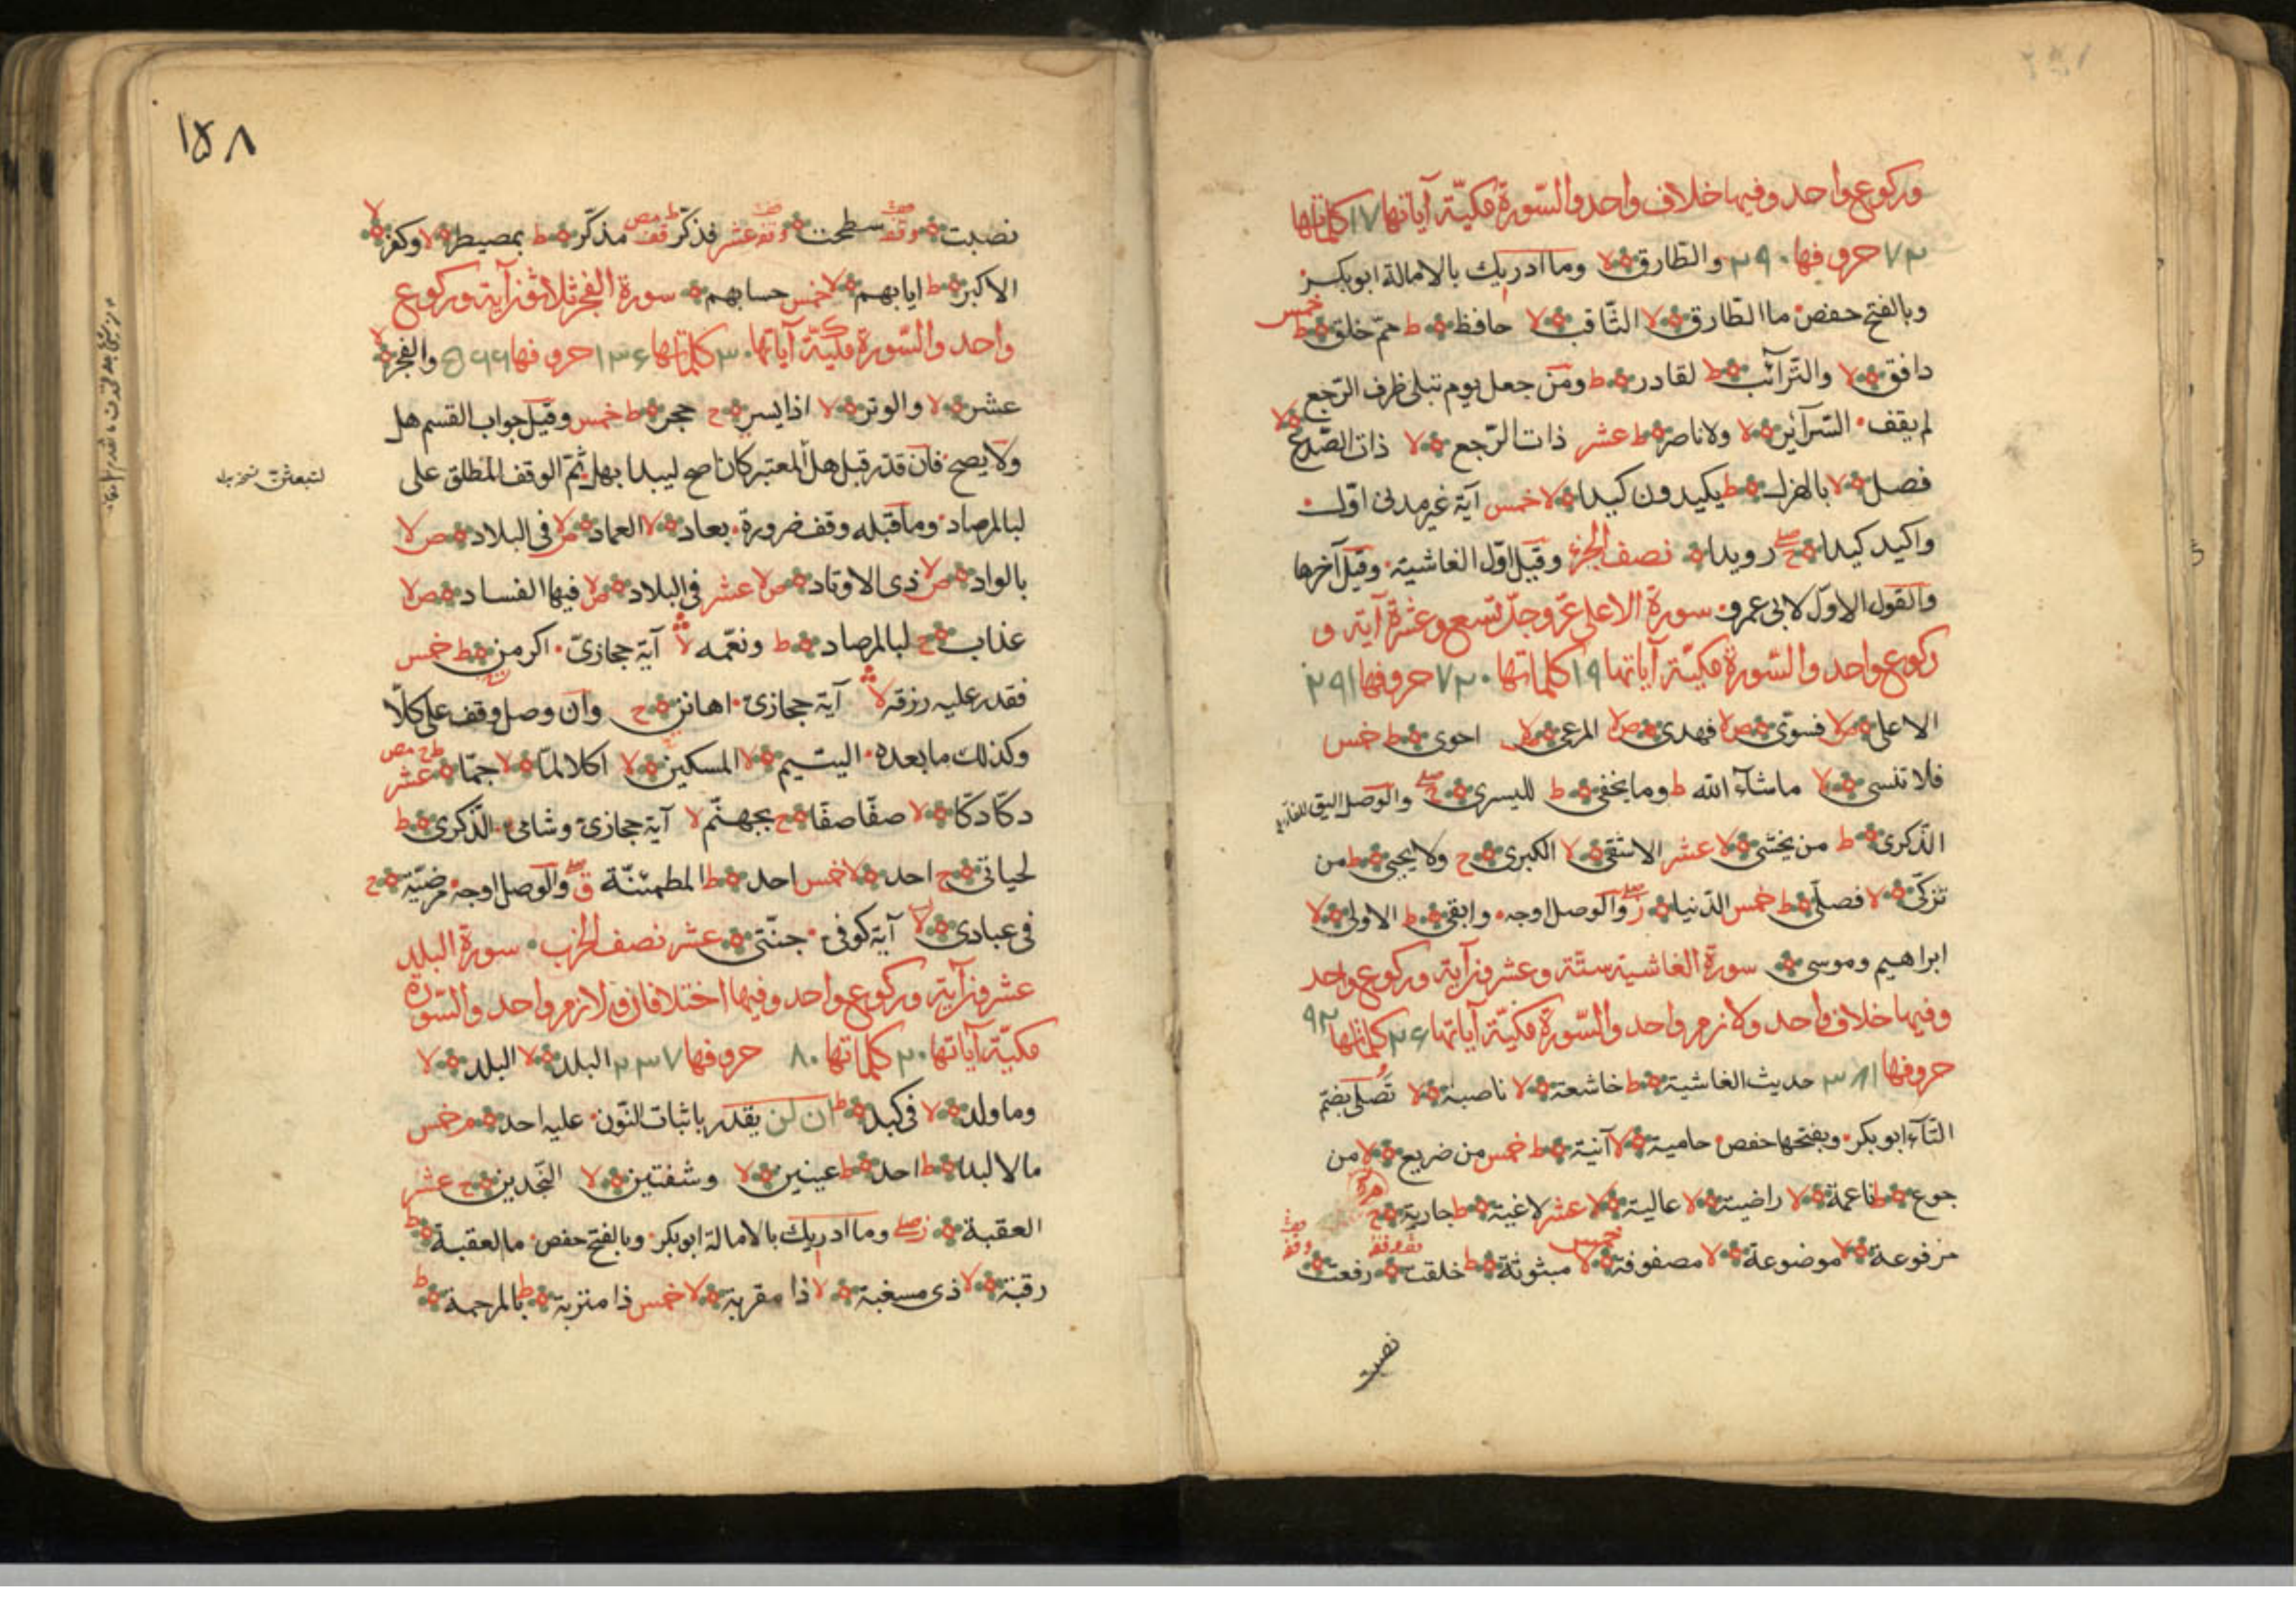 وركوع واحد وفيها خلاف واحد والسّورة مكيّة آياتها ١٧ كلماتها
٧٢ حروفها ٢٩٠ والطّارق لا وما ادريك بالامالة ابوبكر
وبالفتح حفص ما الطّارق لا الثّاقب لا حافظ ط ممّ خلق ط خمس
دافق لا والتّرآئب ط لقادر ط ومن جعل يوم تبلى ظرف الرّجع
لم يقف السّرآئر لا ولا ناصر ط عشر ذات الرّجع لا ذات الصّدع لا
فصل لا بالهزل ط يكيدون كيدا لا خمس آية غير مدنى اوّل
واكيد كيدا ج صلے رويدا نصف الجزء وقيل اوّل الغاشية وقيل آخرها
والقول الاوّل لابى عمرو سورة الاعلى عزّ وجلّ تسع وعشرة آية و
ركوع واحد والسّورة مكيّة آياتها ١٩ كلماتها ٧٢٠ حروفها ٢٩١
الاعلى ص لا فسوّى ص لا فهدى ص لا المرعى ص لا احوى ط خمس
فلا تنسى لا ماشآء الله ط وما يخفى ط لليسرى ج صلے والوصل اليق
الذّكرى ط من يخشى لا عشر الاشقى لا الكبرى ج ولا يحيى ط من
تزكّى لا فصلّى ط خمس الدّنيا ز صلے والوصل اوجه وابقى ط الاولى لا
ابراهيم وموسى سورة الغاشية ستّة وعشرون آية وركوع واحد
وفيها خلاف واحد ولازم واحد والسّورة مكيّة آياتها ٢٦ كلماتها ٩٢
حروفها ٣٨١ حديث الغاشية ط خاشعة لا ناصبة لا تُصلى بضمّ
التّآء ابوبكر وبفتحها حفص حامية لا آنية ط خمس من ضريع لا من
جوع ط ناعمة لا راضية لا عالية لا عشر لاغية ط جارية م
مرفوعة لا موضوعة لا مصفوفة لا خمس مبثوثة ط خلقت وقفة رفعت وقفة
نصبت
١٥٨
نصبت وقفة سطحت وقفة عشر فذكّر قف مذكّر ط بمصيطر لا وكفر لا
الاكبر ط ايابهم لا خمس حسابهم سورة الفجر ثلاثون آية وركوع
واحد والسّورة مكيّة آياتها ٣٠ كلماتها ١٣٦ حروفها ٥٩٩ والفجر لا
عشر لا والوتر لا اذا يسر ج حجر ط خمس وقيل جواب القسم هل
ولا يصح فان قدّر قبل هل المعتبر كان صح ليبدا بهل ثمّ الوقف المطلق على
لبالمرصاد وما قبله وقف ضرورة بعاد لا العماد ص لا فى البلاد ص لا
بالواد ص لا ذى الاوتاد ص لا عشر فى البلاد ص لا فيها الفساد ص لا
عذاب ج لبالمرصاد ط ونعّمه لا آية حجازىّ اكرمن ط خمس
فقدر عليه رزقه لا آية حجازىّ اهانن ج وان وصل وقف على كلّا
وكذلك ما بعده اليتيم لا المسكين لا اكلا لمّا لا جمّا ط عشر
دكّا دكّا لا صفّا صفّا ج بجهنّم لا آية حجازىّ وشامى الذّكرى ط
لحياتى ج احد لا خمس احد ط المطمئنّة ق صلے والوصل اوجه مرضيّة ج
فى عبادى لا آية كوفى جنّتى عشر نصف الحزب سورة البلد
عشرون آية وركوع واحد وفيها اختلافان ولازم واحد والسّورة
مكيّة آياتها ٢٠ كلماتها ٨٠ حروفها ٢٣٧ البلد لا البلد لا
وما ولد لا فى كبد ط ان لن يقدر باثبات النّون عليه احد م خمس
مالا لبدا ط احد ط عينين لا وشفتين لا النّجدين ج عشر
العقبة ز صلے وما ادريك بالامالة ابوبكر وبالفتح حفص ما العقبة ط
رقبة لا ذى مسغبة لا ذا مقربة لا خمس ذا متربة ط بالمرحمة ط